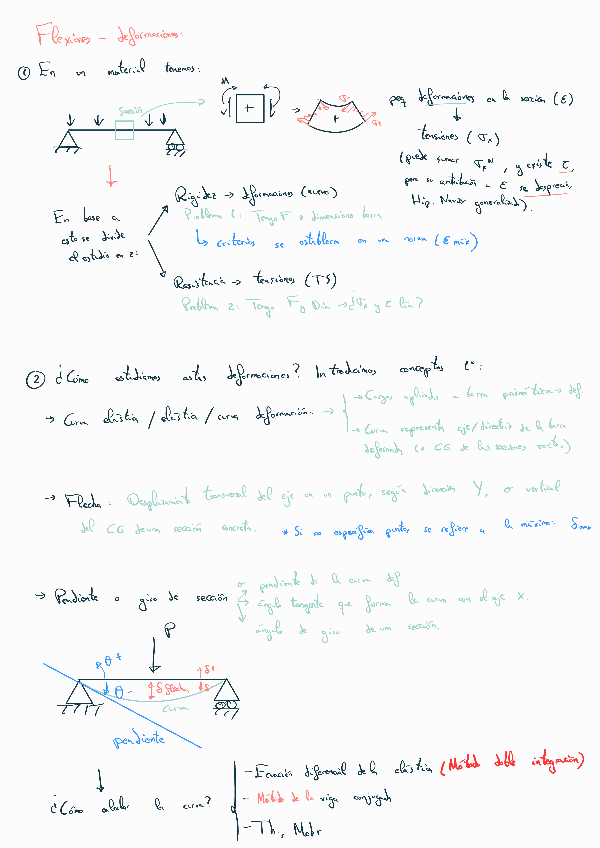 Flexiones - deformaciones:
① En un material tenemos:
sección
M
σx
peq deformaciones en la sección (ε)
tensiones (σx)
(puede sumar σxᴺ, y existe τ,
pero su contribución a ε se desprecia,
Hip. Navier generalizada).
En base a
esto se divide
el estudio en 2:
Rigidez → deformaciones (nuevo)
Problema 1: Tengo F → dimensiono barra
↳ criterios se establecen en una norma (ε máx)
Resistencia → tensiones (T5)
Problema 2: Tengo F y Dim → ¿σx y τ lím?
② ¿Cómo estudiamos estas deformaciones? Introducimos conceptos 1º:
→ Curva elástica / elástica / curva deformación: →
→ Cargas aplicadas a barra prismática → def.
→ Curva representa eje/directriz de la barra
deformada (o CG de las secciones rectas)
→ Flecha: Desplazamiento transversal del eje en un punto, según dirección Y, o vertical
del CG de una sección concreta. * Si no especifica punto, se refiere a la máxima: δmax
→ Pendiente o giro de sección
o pendiente de la curva def.
ángulo tangente que forma la curva con el eje x.
ángulo de giro de una sección.
P
θ+
θ-
δ flecha
δ+
δ-
curva
pendiente
¿Cómo calcular la curva?
- Ecuación diferencial de la elástica (Método doble integración)
- Método de la viga conjugada
- Th. Mohr